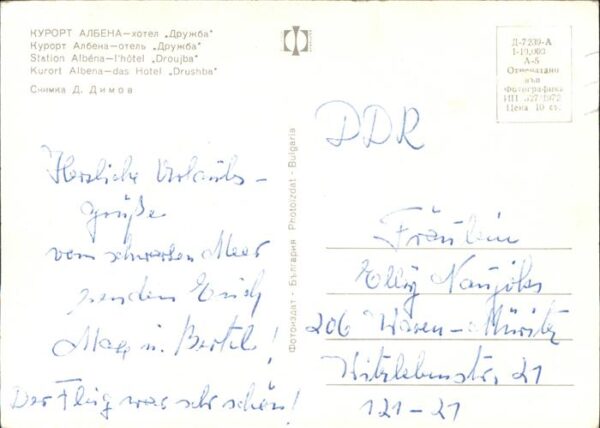 КУРОРТ АЛБЕНА—хотел „Дружба"
Курорт Албена—отель „Дружба"
Station Albéna—l'hôtel „Droujba"
Kurort Albena—das Hotel „Drushba"
Снимка Д. Димов
Herzliche Urlaubs-
grüße
vom schwarzen Meer
senden Erich
Max u. Bertel!
Der Flug war sehr schön!
Фотоиздат - България Photoizdat - Bulgaria
Д-7239-А
1-10,003
А-5
Отпечатано
във
Фотографика
ИП 527/1972
Цена 10 ст.
DDR
Fräulein
Elly Naujoks
206 Waren-Müritz
Witzlebenstr. 21
121-21